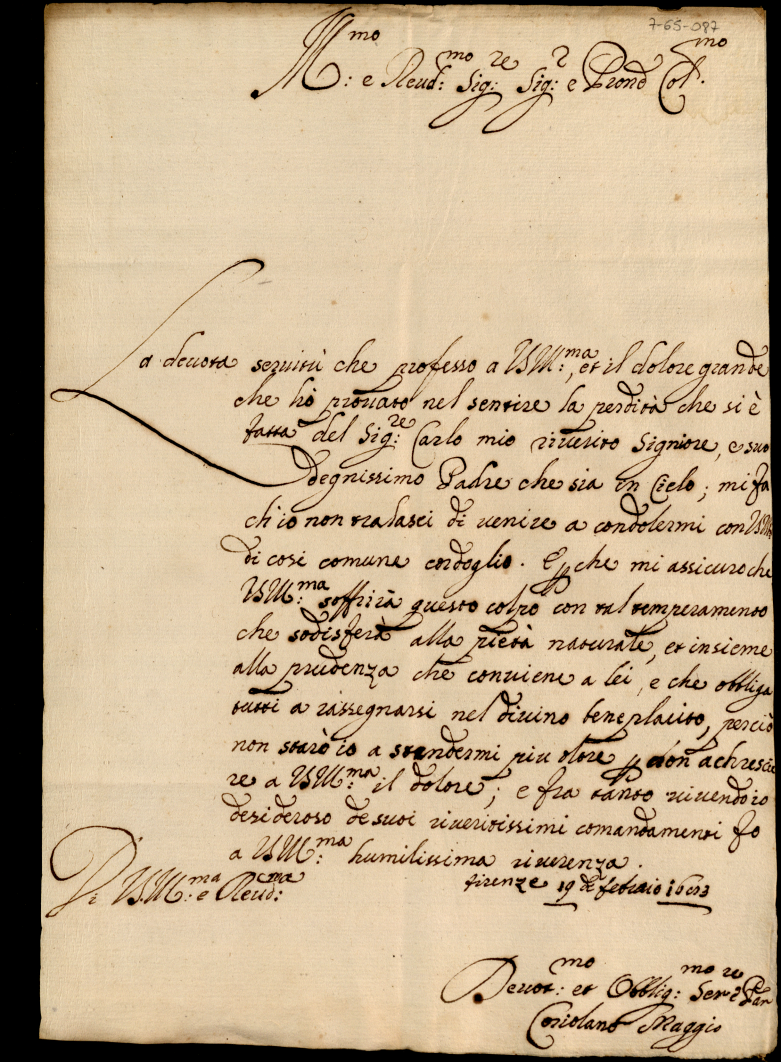 7-65-087
Ill:mo e Reud:mo Sig:re Sig:r e Prone Col.mo
La deuota seruitù che professo a VSIll:ma, et il dolore grande
che hò prouato nel sentire la perdita che si è
fatta del Sig:re Carlo mio riuerito Signore, e suo
degnissimo Padre che sia in Cielo; mi fa
ch'io non tralasci di uenire a condolermi con VSIll
di così comune cordoglio. E p che mi assicuro che
VSIll:ma soffrirà questo colpo con tal temperamento
che sodisferà alla pietà naturale, et insieme
alla prudenza che conuiene a lei, e che obbliga
tutti a rassegnarsi nel diuino beneplacito, perciò
non starò io a stendermi piu oltre p non achrescie
re a VSIll:ma il dolore; e fra tanto uiuendo io
desideroso de suoi riueritissimi comandamenti fo
a VSIll:ma humilissima riuerenza.
Firenze 19 di febraio
Di VSIll:ma e Reud:ma
Deuot:mo et Obblig:mo Ser:re
Coriolano Maggio